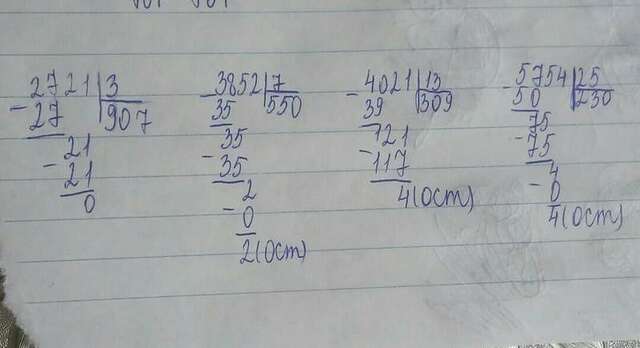 2721 3
- 27 907
21
- 21
0
3852 7
- 35 550
35
- 35
2
- 0
2(ост)
4021 13
- 39 309
121
- 117
4(ост)
5754 25
- 50 230
75
- 75
4
- 0
4(ост)